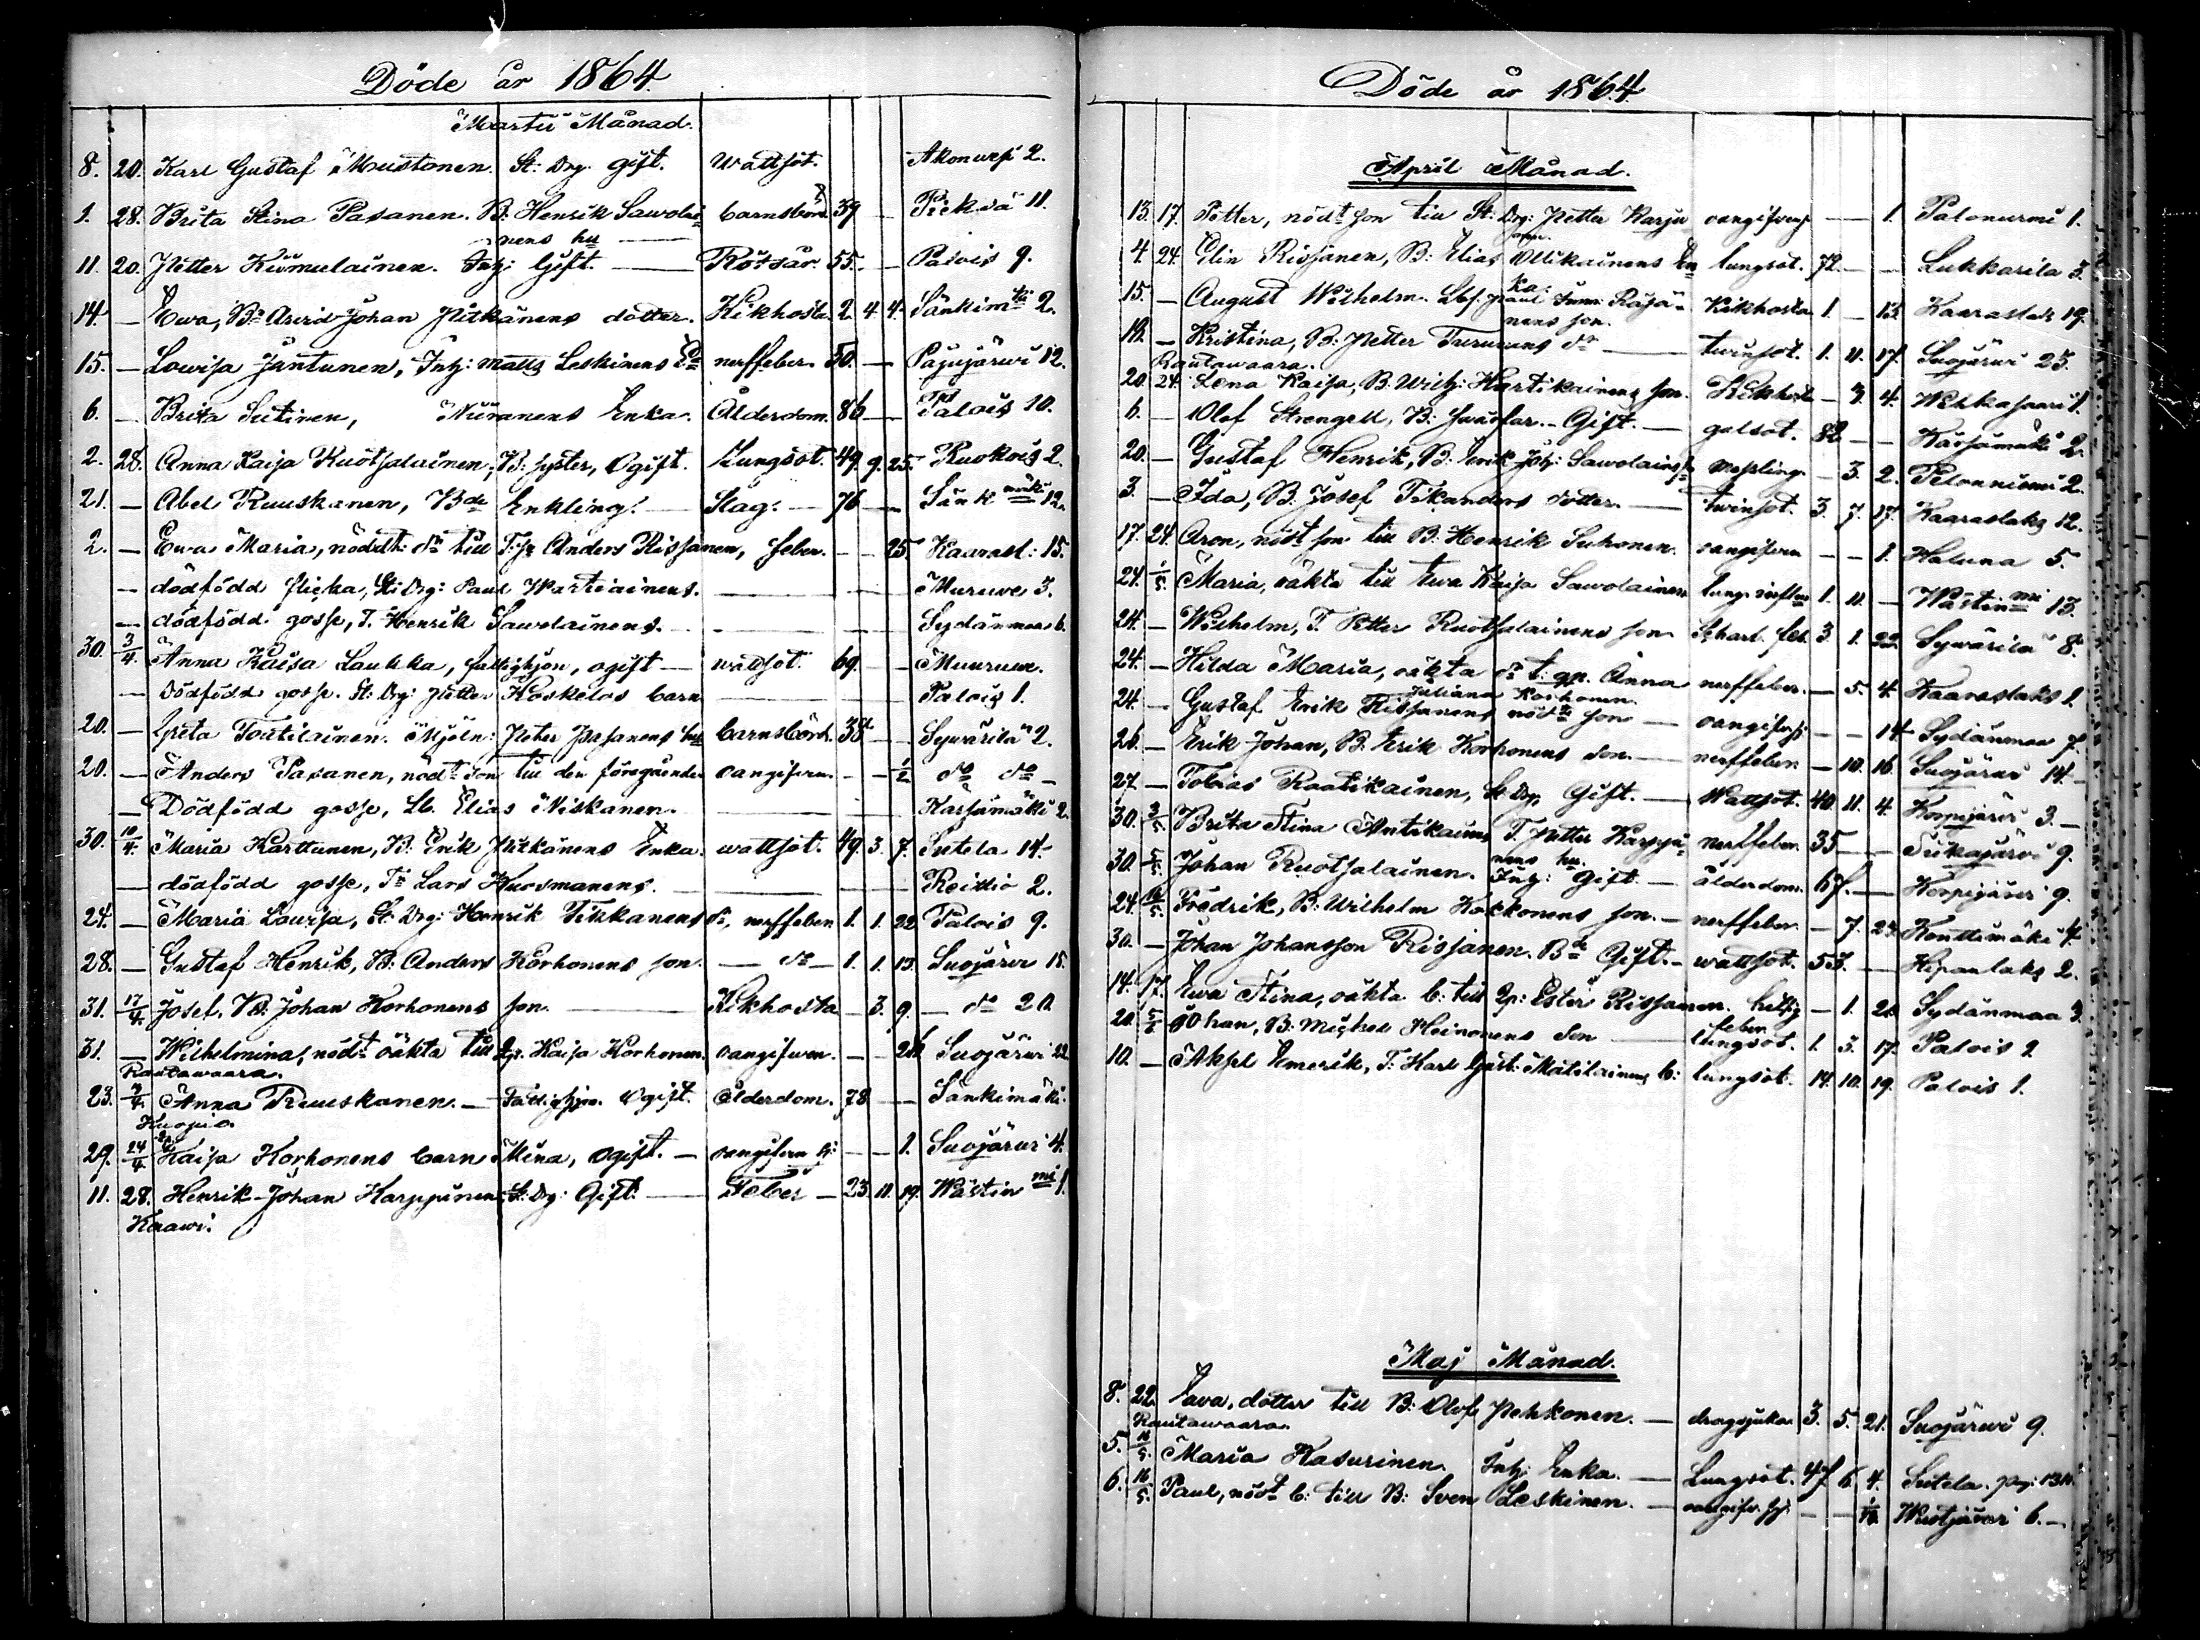 Döde år 1864.
Martii Månad.
8. 20. Karl Gustaf Mustonen. St: Drg. gift. Wattsot. Akonwesi 2.
1. 28. Brita Stina Pasanen. B. Henrik Sawolai barnsbörd 39 — Pieksä 11.
nens hu
11. 20. Petter Kiimulainen. Inh: Gift. — Rötsår. 55. — Palois 9.
14. — Ewa, Johan Pitkänens dotter. Kikhosta. 2. 4. 4. Sänkim 2.
15. — Lowisa Jäntunen, Inh: Matts Leskinens nerffeber. 50. — Pajujärwi 12.
6. — Brita Sutinen, Niiranens Enka. Ålderdom. 86 — Palois 10.
2. 28. Anna Kaisa Ruotsalainen, B: syster, Ogift. Lungsot. 49. 9. 25. Ruokois 2.
21. — Abel Ruuskanen, Bde Enkling. — Slag. — 76 — Sänkmäki 12.
2. — Ewa Maria, nöddt: dr till Anders Rissanen, feber. — — 25. Kaarasl: 15.
— dödfödd flicka, St: Drg: Paul Wartiainens. — Muruwe 3.
— dödfödd gosse, T. Henrik Sawolainens. — Sydänmaa 6.
30. 3/4. Anna Kaisa Laukka, fattighjon, ogift — wattsot. 69. — Muuruwe.
— Dödfödd gosse. St: Drg: Petter Koskelos barn — Palois 1.
20. — Greta Toutilainen. Mjöln: Peter Pasanens hu barnsbörd. 38 — Sywärilä 2.
20. — Anders Pasanen, nödt son till den föregående oangifven. — — 1/2 do do —
— Dödfödd gosse, Lb. Elias Niskanen. — Karsämäki 2.
30. 10/4. Maria Karttunen, B. Erik Pitkänens Enka. wattsot. 49. 3. 7. Sutela 14.
— dödfödd gosse, Tr Lars Kuosmanens. — Reittio 2.
24. — Maria Lowisa, St: Drg: Henrik Tikkanens dr, nerffeber. 1. 1. 22 Palois 9.
28. — Gustaf Henrik, B. Anders Korhonens son. — do — 1. 1. 13. Suojärwi 15.
31. 17/4. Josef, B. Johan Korhonens son. — Kikhosta — 3. 9. — do 20.
31. — Wilhelmina, nödt oäkta till Kaisa Korhonen. oangifwen. — — 26 Suojärwi 22
Rautawaara.
23. Anna Ruuskanen. — Fattighjon. Ogift. ålderdom. 78 — Sänkimäki.
Kuopio.
29. 24/4. Kaisa Korhonens barn Mina, ogift. — oangifven — — 1. Suojärwi 4.
11. 28. Henrik Johan Karppinen St: Drg: Gift. — Feber — 23. 11. 19. Wästin mi 1.
Kaawi.
Döde år 1864.
April Månad.
13. 17. Petter, nödt son till St: Drg: Petter Karju oangifven — — 1. Palonurmi 1.
4. 24. Elin Rissanen, B: Elias Ollikainens En lungsot. 72. — — Lukkarila 3.
15. — August Wilhelm. Paul Räsä- Kikhosta 1. — 13. Kaaraslaks 19.
nens son.
18. — Kristina, B: Petter Turunens dr — twinsot. 1. 11. 17. Suojärwi 23.
Rautawaara.
20. 24. Lena Kaisa, B. Wilh: Hartikainens Kikhost — 3. 4. Wehkasaari 1.
6. — Olof Strengell, B: swärfar. — Gift. — gulsot. 82. — — Karsämäki 2.
20. — Gustaf Henrik, B: Erik Joh: Sawolains messling. — 3. 2. Pelonniemi 2.
3. — Ida, B. Josef Tikanders dotter. — twinsot. 3. 7. 17. Kaaraslaks 12.
17. 24. Aron, nödt son till B: Henrik Suhonen. oangifven — — 1. Haluna 5.
24. 1/5. Maria, oäkta till Ewa Kaisa Sawolainen 1. 11. — Wästin mi 13.
24. — Wilhelm, T. Petter Ruotsalainens son Scharl. feb. 3. 1. 22. Sywärilä 8.
24. — Hilda Maria, oäkta dr t. Anna nerffeber. — 5. 4. Kaaraslaks 1.
Juliana Korhonen.
24. — Gustaf Erik Rissanens nödt son — oangifven — — 14 Sydänmaa 7.
26. — Erik Johan, B. Erik Korhonens son. — nerffeber — 10. 16. Suojärwi 14.
27. — Tobias Raatikainen, St: Drg. Gift. — Wattsot. 40. 11. 4. Korpijärwi 3. —
30. 3/5. Brita Stina Antikainen, T. Petter Karppi- nerffeber. 35 — — Siikajärwi 9.
nens hu.
30. 5/5. Johan Ruotsalainen. Inh: Gift — ålderdom. 67. — Korpijärwi 9.
24. Fredrik, B: Wilhelm Kokkonens son. — nerffeber. — 7. 23. Konttimäki 4.
30. — Johan Johansson Rissanen. Bde Gift. — wattsot. 53. — Kipanlaks 2.
14. 17. Ewa Stina, oäkta b: till Ester Rissanen. hetsig — 1. 20 Sydänmaa 3.
feber
20. Johan, B: Michell Heinonens son — lungsot. 1. 3. 17. Palois 2
10. — Aksel Emerik, T: Karl Gust: Matilainens b: lungsot. 14. 10. 19. Palois 1.
Maj Månad.
8. 22. Eava, dotter till B: Olof Pehkonen. — dragsjuka 3. 5. 21. Suojärwi 9.
Rautawaara.
5. Maria Kasurinen. Inh: Enka. — Lungsot. 47 6. 4. Sutela.
6. 16/5. Paul, nödt b: till B: Sven Leskinen. — — — Wuotjärwi 6. —